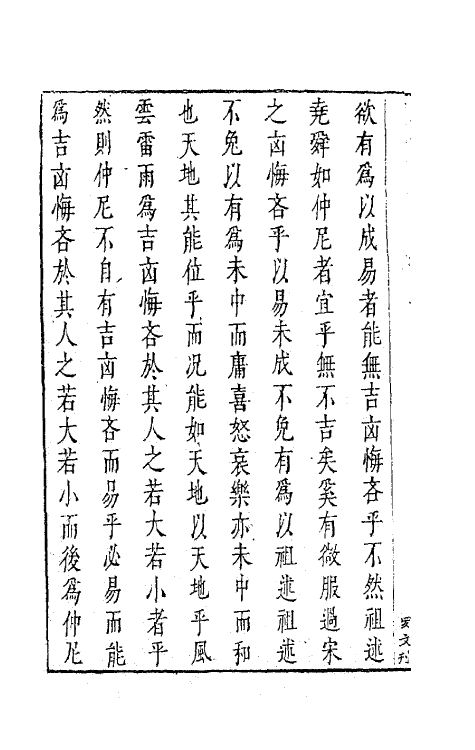 欲有爲以成易者能無吉凶悔吝乎不然祖述
堯舜如仲尼者宜乎無不吉矣奚有微服過宋
之凶悔吝乎以易未成不免有爲以祖述祖述
不免以有爲未中而庸喜怒哀樂亦未中而和
也天地其能位乎而况能如天地以天地乎風
雲雷雨爲吉凶悔吝於其人之若大若小者乎
然則仲尼不自有吉凶悔吝而易乎必易而能
爲吉凶悔吝於其人之若大若小而後爲仲尼